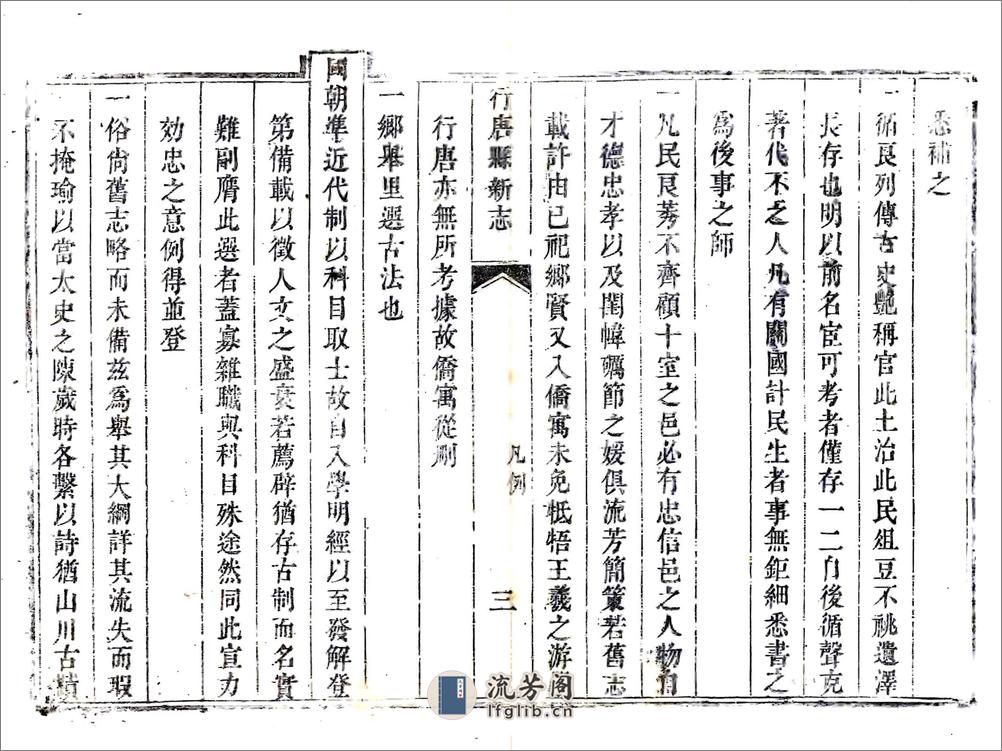 悉補之
一循良列傳古史艷稱官此土治此民俎豆不祧遺澤
長存也明以前名宦可考者僅存一二自後循聲克
著代不乏人凡有關國計民生者事無鉅細悉書之
為後事之師
一凡民良莠不齊顧十室之邑必有忠信邑之人物有
才德忠孝以及閨幃礪節之媛俱流芳簡策若舊志
載許由已祀鄉賢又入僑寓未免牴牾王羲之游
行唐縣新志
凡例
三
行唐亦無所考據故僑寓從刪
一鄉舉里選古法也
國朝準近代制以科目取士故自入學明經以至發解登
第備載以徵人文之盛衰若薦辟猶存古制而名實
難副膺此選者蓋寡雜職與科目殊途然同此宣力
効忠之意例得並登
一俗尚舊志略而未備茲為舉其大綱詳其流失而瑕
不掩瑜以當太史之陳歲時各繫以詩猶山川古蹟
流芳阁
lfglib.cn